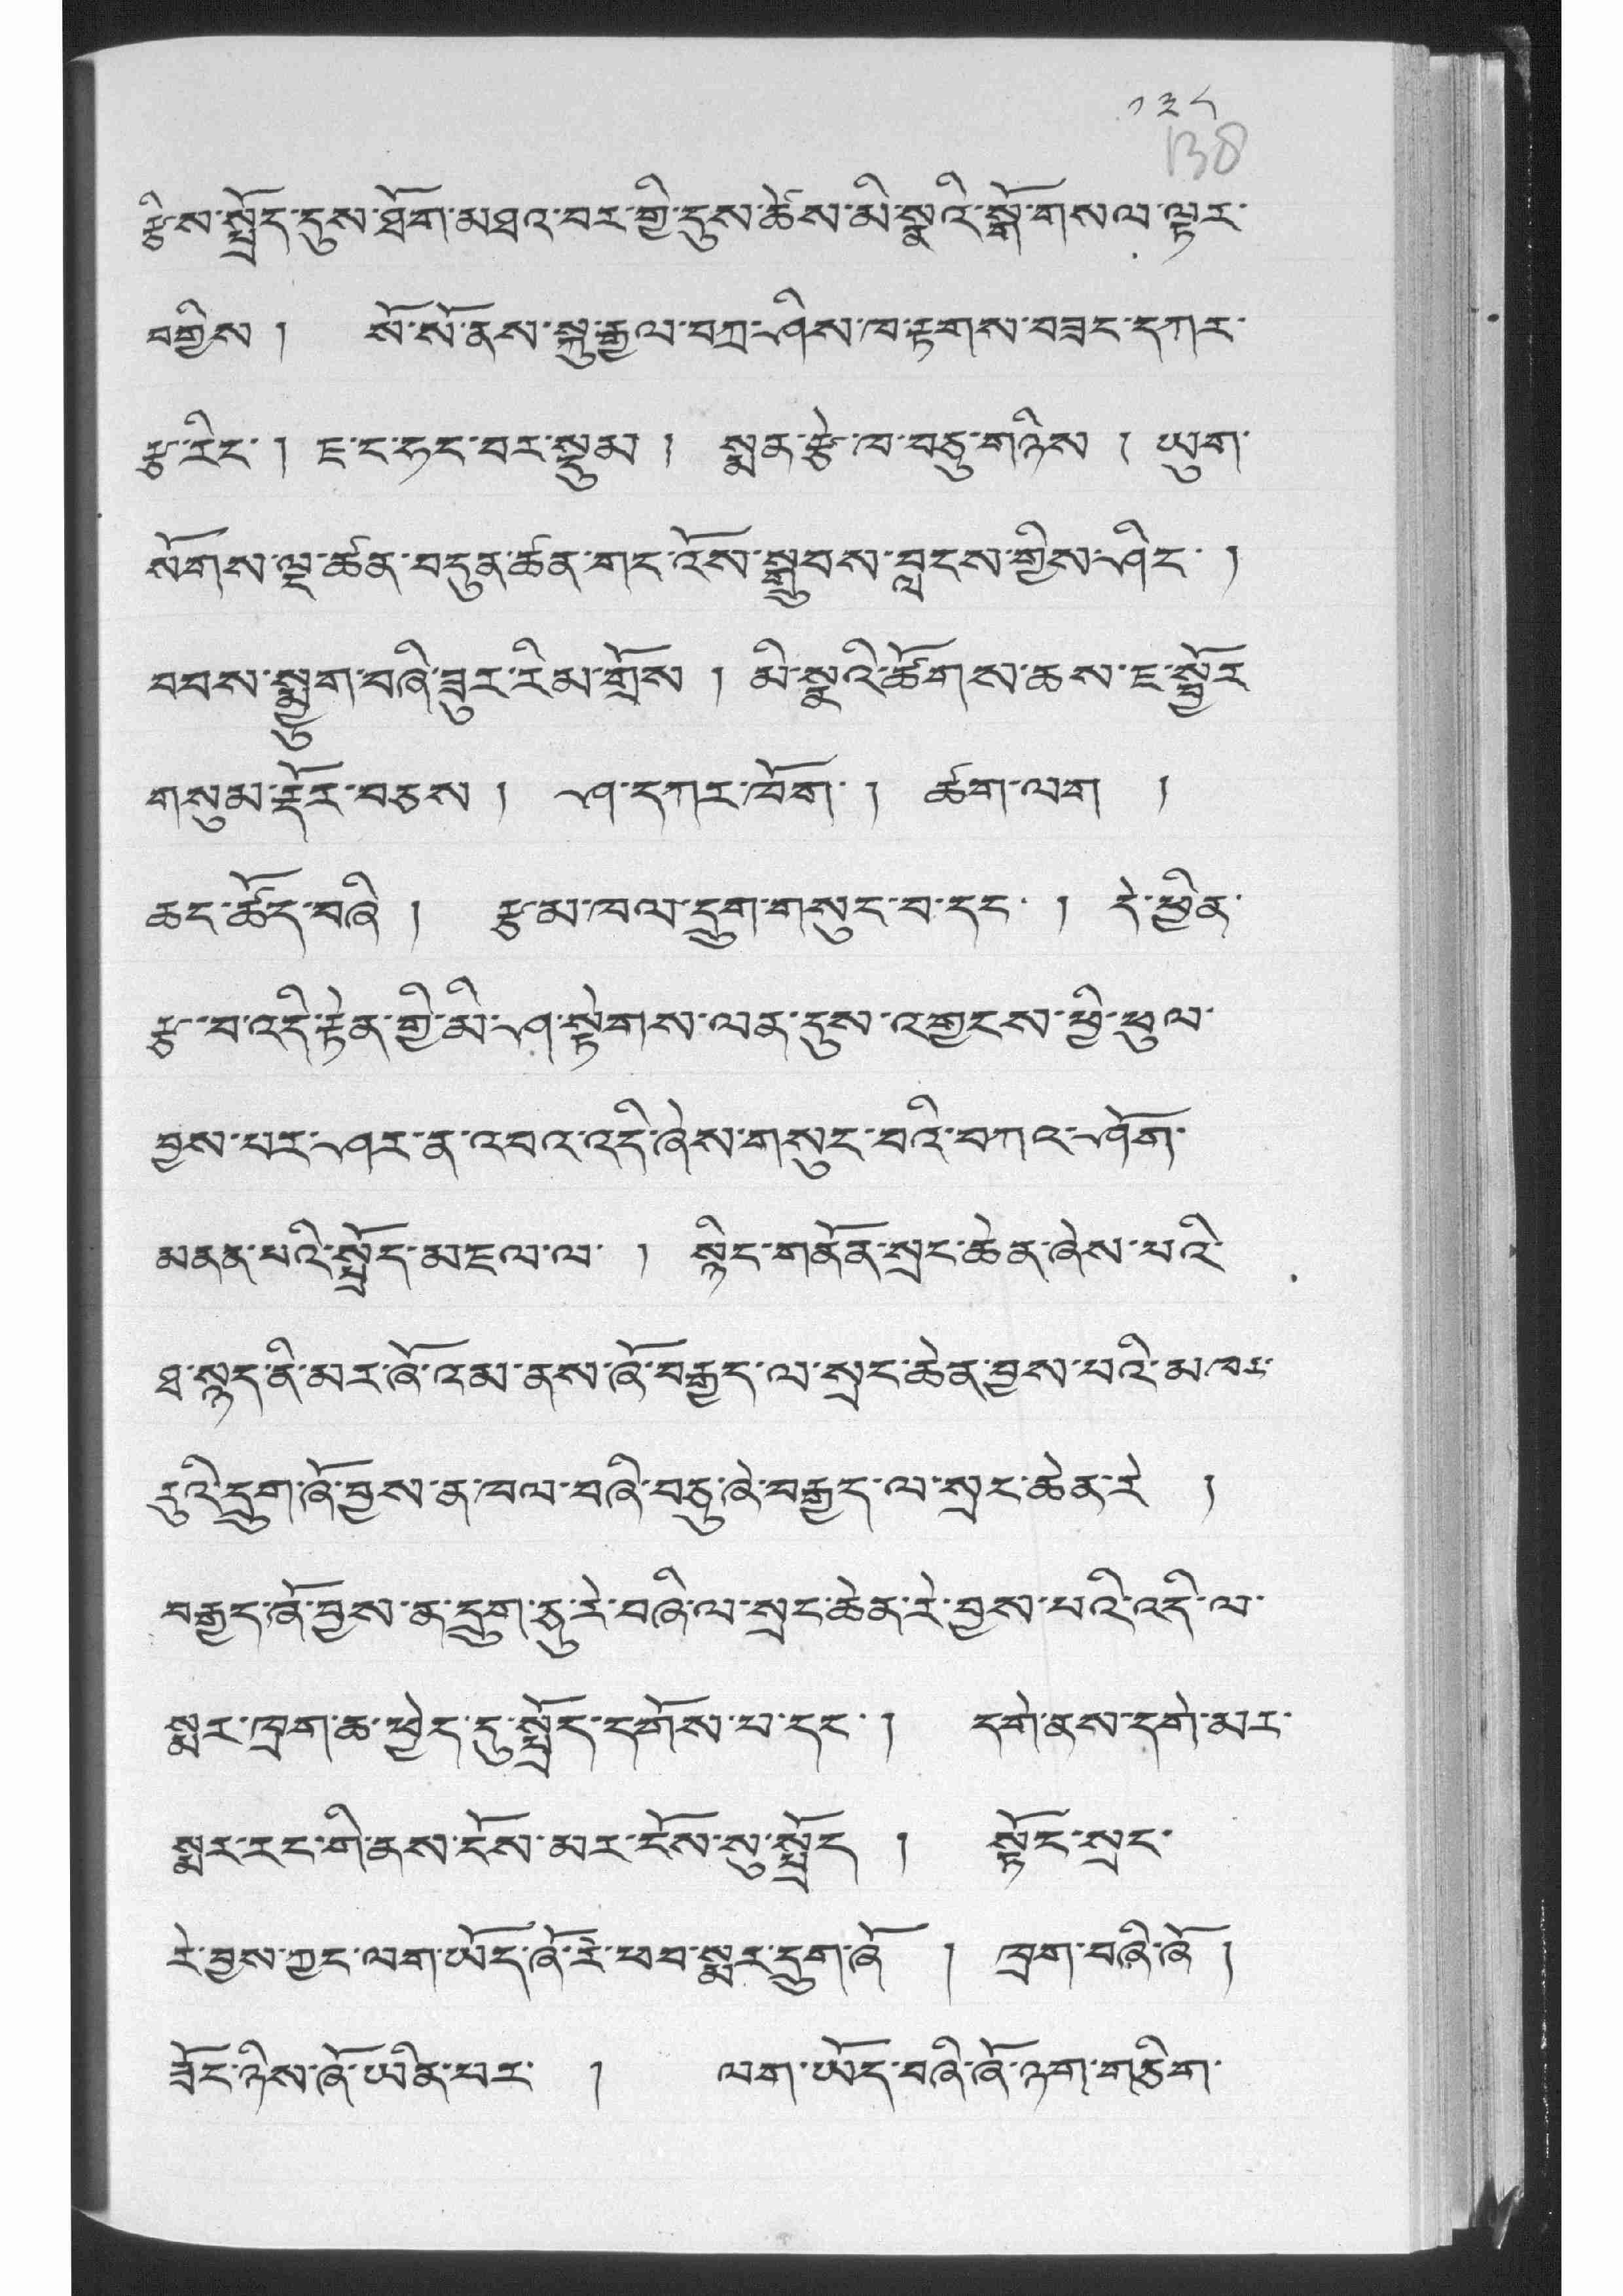 ༡༣༨
138
རྩིས་སྤྲོད་དུས་ཐོག་མཐའ་བར་གྱི་དུས་ཚེས་མི་སྣའི་སྒོ་གསལ་ལྟར་
བགྱིས། སོ་སོ་ནས་སྐུ་རྒྱལ་བཀྲ་ཤིས་ཁ་རྟགས་བཟང་དཀར་
རྩ་རིང་། ཇ་ང་ཧང་བར་སྡུམ། སྨན་རྩེ་ཁ་བཅུ་གཉིས། ཡུག་
སོགས་ལྔ་ཚན་བདུན་ཚན་གང་འོས་སྒྲུབས་བླངས་གྱིས་ཤིང་།
བབས་སྨྱུག་བཞི་ཟུར་རིམ་གྲོས། མི་སྣའི་ཚོགས་ཆས་ཇ་སྦྱོར
གསུམ་རྡོར་བཅས། ཤ་དཀར་ཁོག། ཚིག་ལག།
ཆང་ཚོད་བཞི། རྩམ་ཁལ་དྲུག་གསུང་བ་དང་། དེ་ཕྱིན་
རྩ་བ་འདི་རྟེན་གྱི་མི་ཤ་སྟེགས་ལན་དུས་འགྱངས་ཕྱི་ཕུལ་
བྱས་པར་ཤར་ན་འབའ་འདི་ཞེས་གསུང་བའི་བཀའ་ཤོག་
མནན་པའི་སྤྲོད་མཇལ་ལ། སྙིང་གནོན་སྲང་ཆེན་ཞེས་པའི་
ཐ་སྙད་ནི་མར་ཞོ་འམ་ནས་ཞོ་བརྒྱད་ལ་སྲང་ཆེན་བྱས་པའི་མཁར་
རུའི་དྲུག་ཞོ་བྱས་ན་ཁལ་བཞི་བཅུ་ཞེ་བརྒྱད་ལ་སྲང་ཆེན་རེ།
བརྒྱད་ཞོ་བྱས་ན་དྲུག་ཅུ་རེ་བཞི་ལ་སྲང་ཆེན་རེ་བྱས་པའི་འདི་ལ་
སྨར་ཁྲག་ཆ་ཕྱེད་དུ་སྤྲོད་དགོས་པ་དང་། དགེ་ནས་དགེ་མར་
སྨར་རང་གི་ནས་ངོས་མར་ངོས་སུ་སྤྲོད། སྟོང་སྲང་
རེ་བྱས་ཀྱང་ལག་ཡོད་ཞོ་རེ་ཕབ་སྨར་དྲུག་ཞོ། ཁྲག་བཞི་ཞོ།
ཟོང་ཉིས་ཞོ་ཡིན་པར། ལག་ཡོད་བཞི་ཞོ་ཉག་གཅིག་